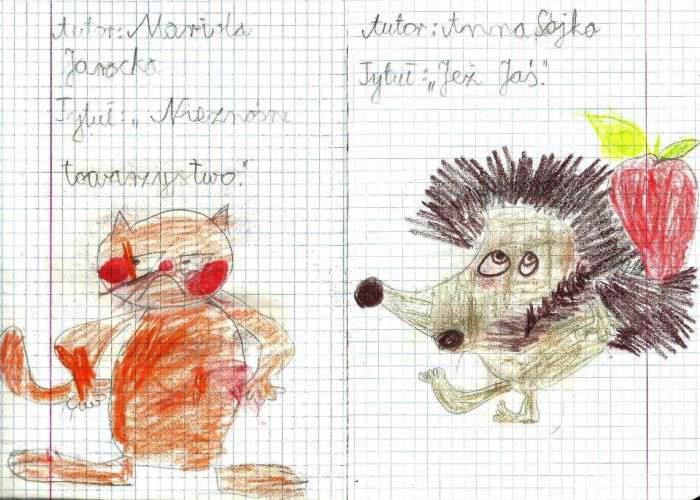 Autor: Mariola
Jarocka
Tytuł: „ Nieznośne
towarzystwo."
Autor: Anna Sójka
Tytuł: „Jeż Jaś."